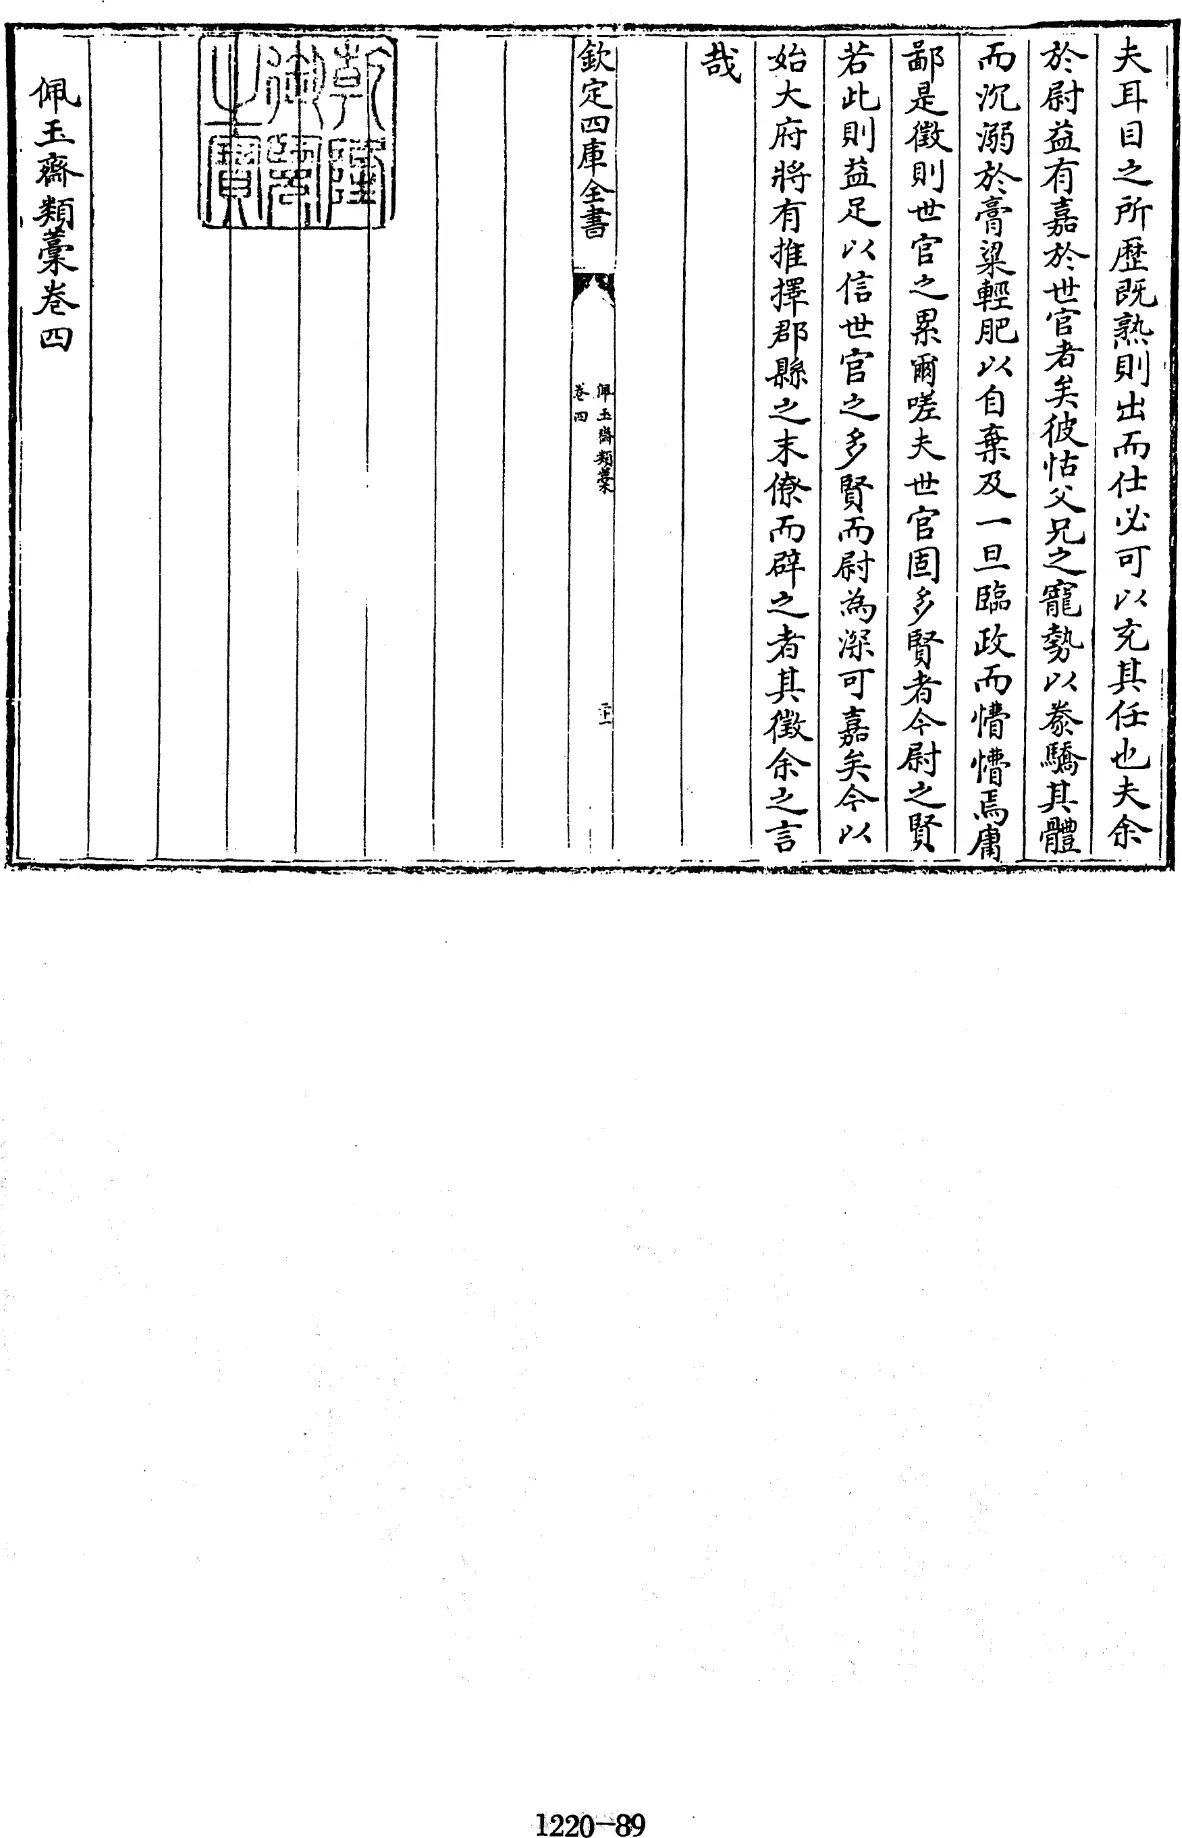 夫耳目之所歴既熟則出而仕必可以充其任也夫余
於尉益有嘉於世官者矣彼怙父兄之寵勢以豢驕其體
而沉溺於膏粱輕肥以自棄及一旦臨政而懵懵焉庸
鄙是徵則世官之累爾嗟夫世官固多賢者今尉之賢
若此則益足以信世官之多賢而尉為深可嘉矣今以
始大府將有推擇郡縣之末僚而辟之者其徵余之言
哉
欽定四庫全書
佩玉齋類藁
卷四
二十一
乾隆御覽之寶
佩玉齋類藁卷四
1220-89